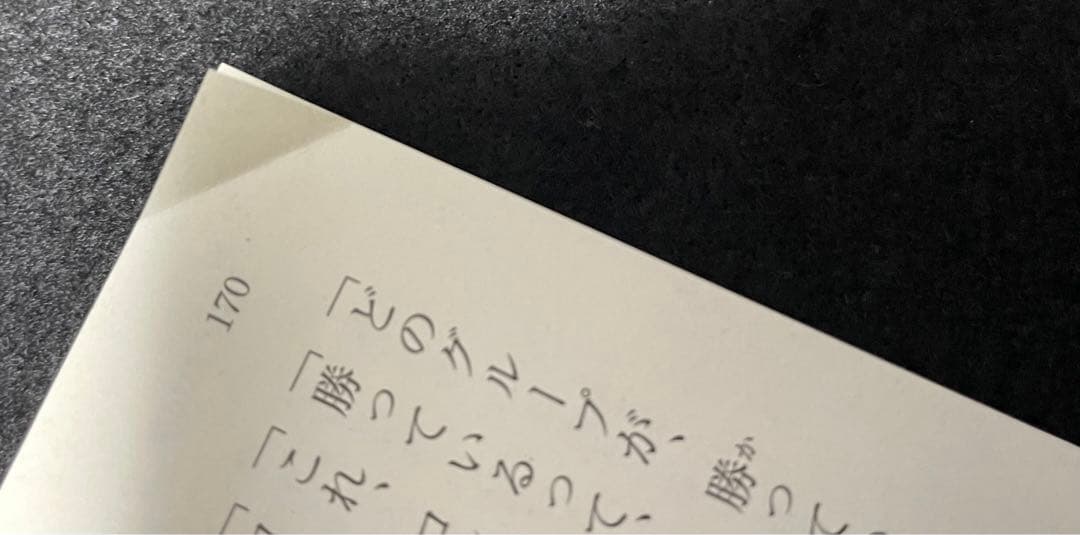 170
「どのグループが、勝かって
「勝っているって、
「これ、